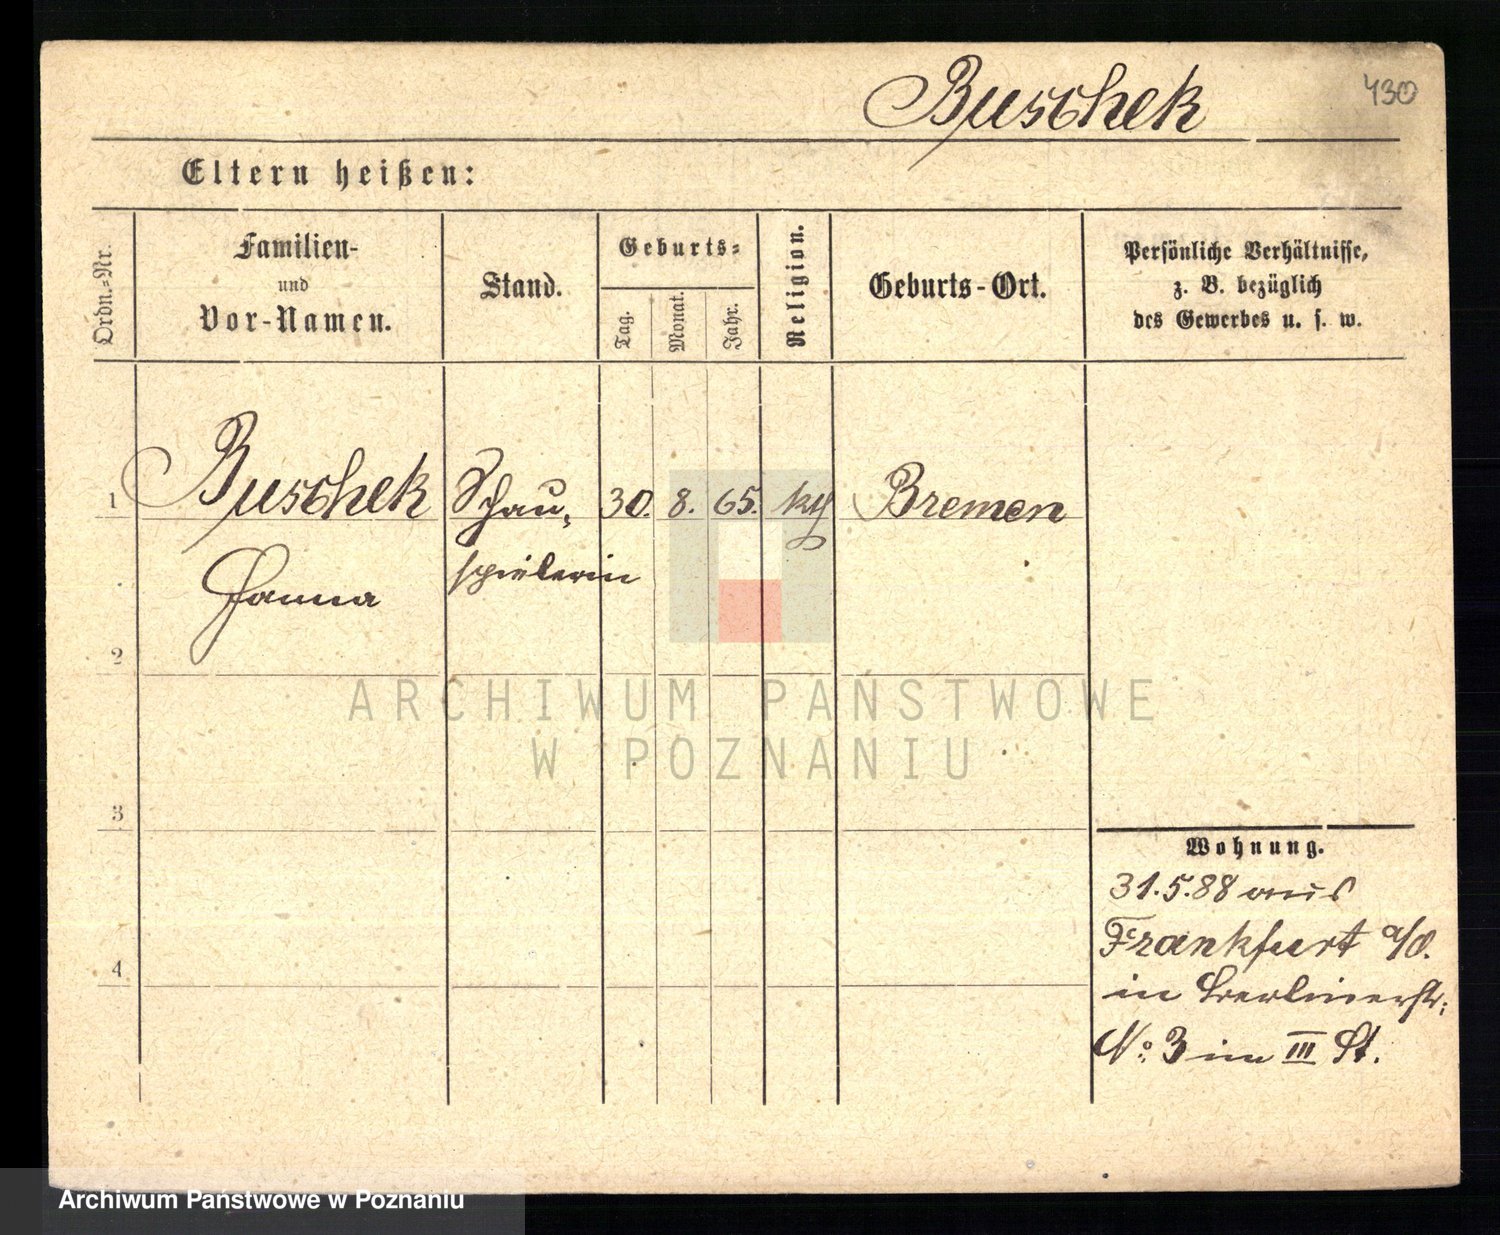 Buschek
430
Eltern heißen:
Ordn.-Nr.
Familien-
und
Vor-Namen.
Stand.
Geburts-
Tag.
Monat.
Jahr.
Religion.
Geburts-Ort.
Persönliche Verhältnisse,
z. B. bezüglich
des Gewerbes u. s. w.
1 Buschek Schau- 30. 8. 65. kth Bremen
Hanna spielerin
2
ARCHIWUM PAŃSTWOWE
W POZNANIU
3
Wohnung.
31.5.88 aus
Frankfurt a/O.
4
in Berlinerstr:
No. 3 im III St.
Archiwum Państwowe w Poznaniu